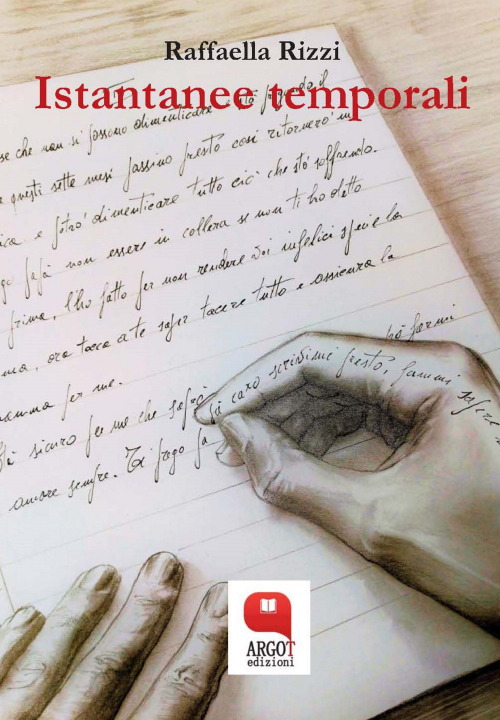 Raffaella Rizzi
Istantanee temporali
se che non si possono dimenticare
questi sette mesi passino presto così ritornerò in
e potrò dimenticare tutto ciò che stò soffrendo.
papà non essere in collera se non ti ho detto
prima, l'ho fatto per non rendere voi infelici
ora tocca a te saper tacere tutto e assicura la
mamma per me.
sicuro per me che saprò
caro scrivimi presto, fammi sapere
ancora sempre. Ti prego
ARGOT
edizioni